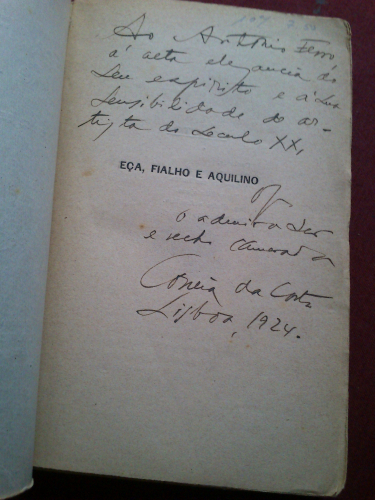 Ao António Ferro
á alta elegancia do
seu espirito e á sua
sensibilidade do ar-
tista do Seculo XX,
EÇA, FIALHO E AQUILINO
of
o admirador
e velho camarada
Correia da Costa
Lisboa, 1924.